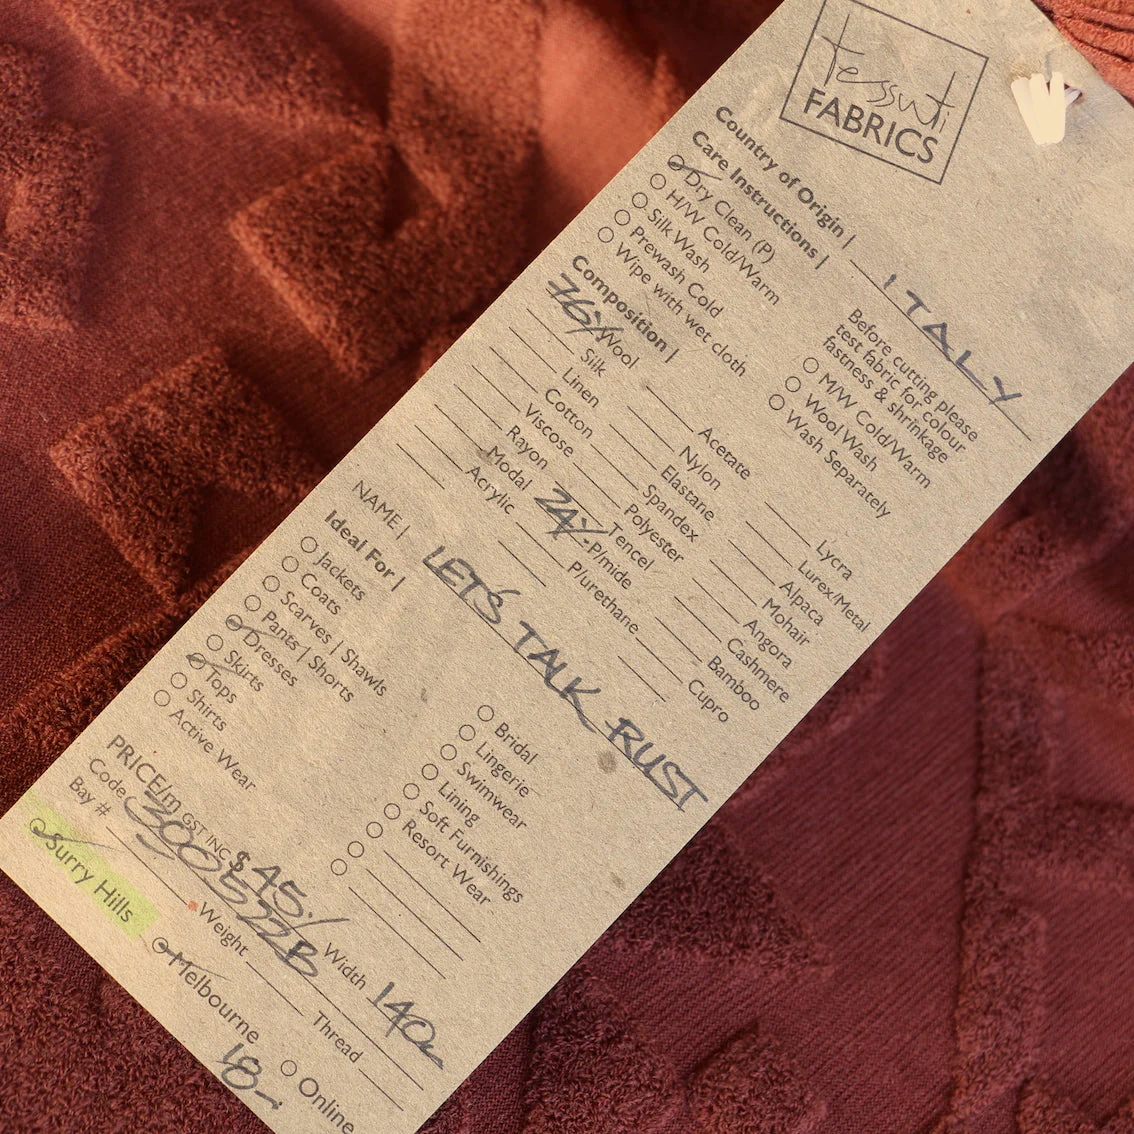 tessuti
FABRICS
Country of Origin | ITALY
Care Instructions |
Dry Clean (P)
H/W Cold/Warm
Silk Wash
Prewash Cold
Wipe with wet cloth
Before cutting please
test fabric for colour
fastness & shrinkage
M/W Cold/Warm
Wool Wash
Wash Separately
Composition |
76% Wool
Silk
Linen
Cotton
Viscose
Rayon
Modal
Acrylic
Acetate
Nylon
Elastane
Spandex
Polyester
Tencel
24% P/mide
P/urethane
Lycra
Lurex/Metal
Alpaca
Mohair
Angora
Cashmere
Bamboo
Cupro
NAME | LET'S TALK RUST
Ideal For |
Jackets
Coats
Scarves | Shawls
Pants | Shorts
Dresses
Skirts
Tops
Shirts
Active Wear
Bridal
Lingerie
Swimwear
Lining
Soft Furnishings
Resort Wear
PRICE/m GST INC $45 Width 140
Code 300522B
Bay # Weight Thread
Surry Hills Melbourne Online
18